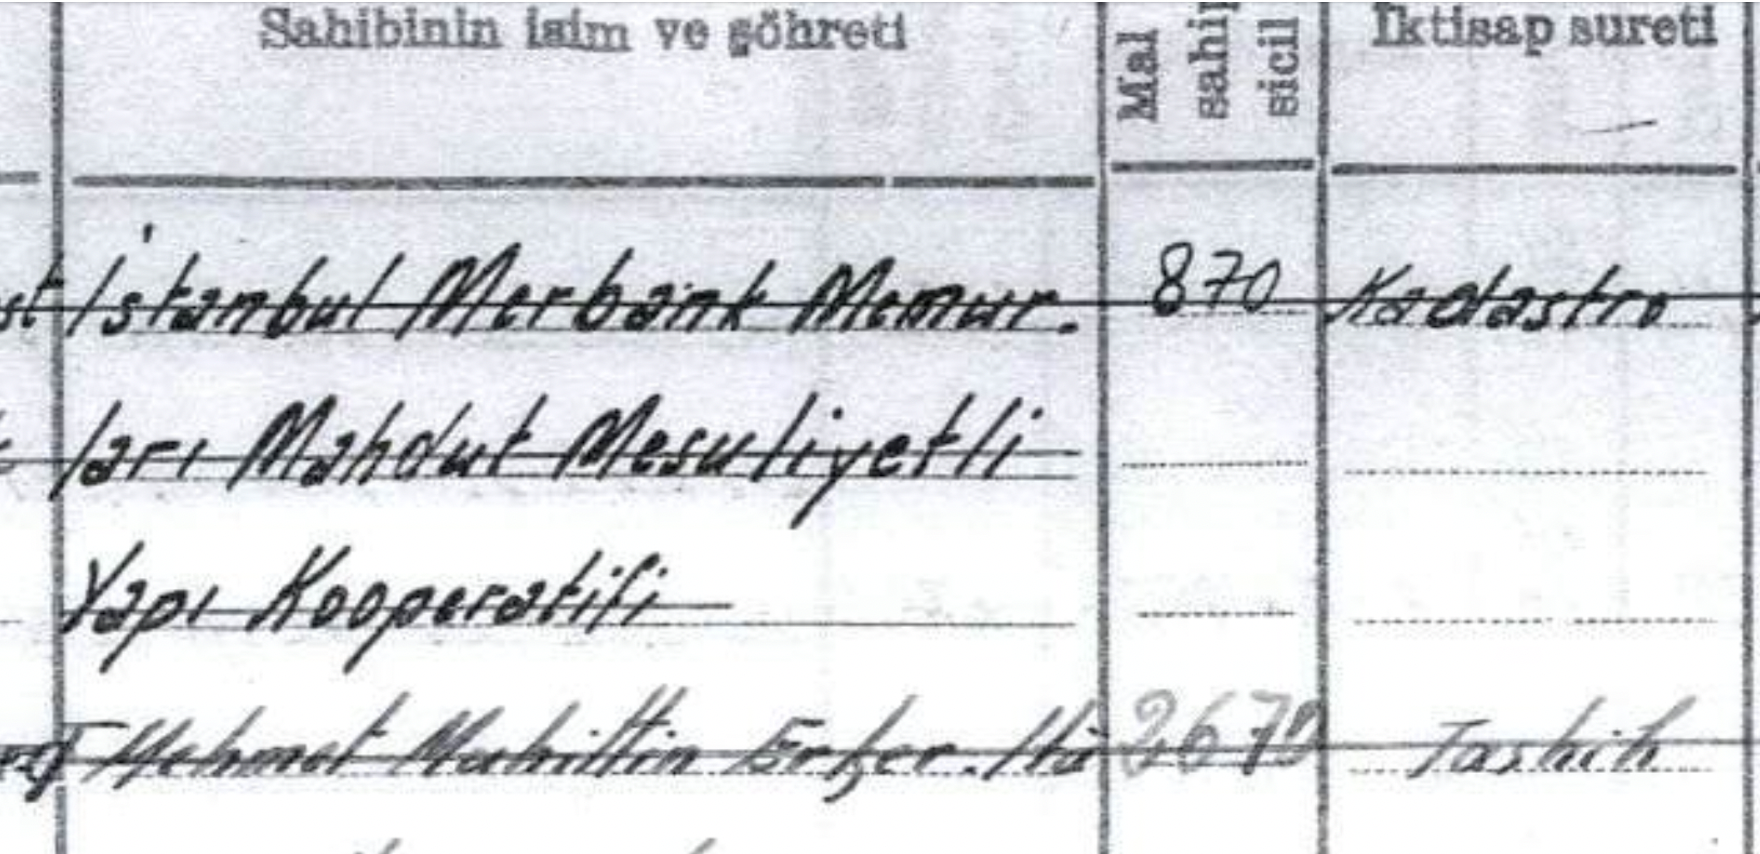 Sahibinin isim ve şöhreti
Mal
sahip
sicil
İktisap sureti
İstanbul Merbank Memur. 870 Kadastro
ları Mahdut Mesuliyetli
Yapı Kooperatifi
Mehmet Muhittin Tashih